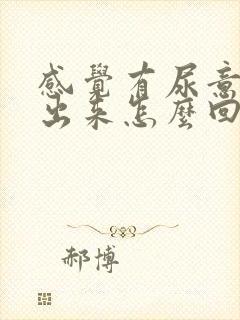 感覺有尿意
出来怎麼回
郝博